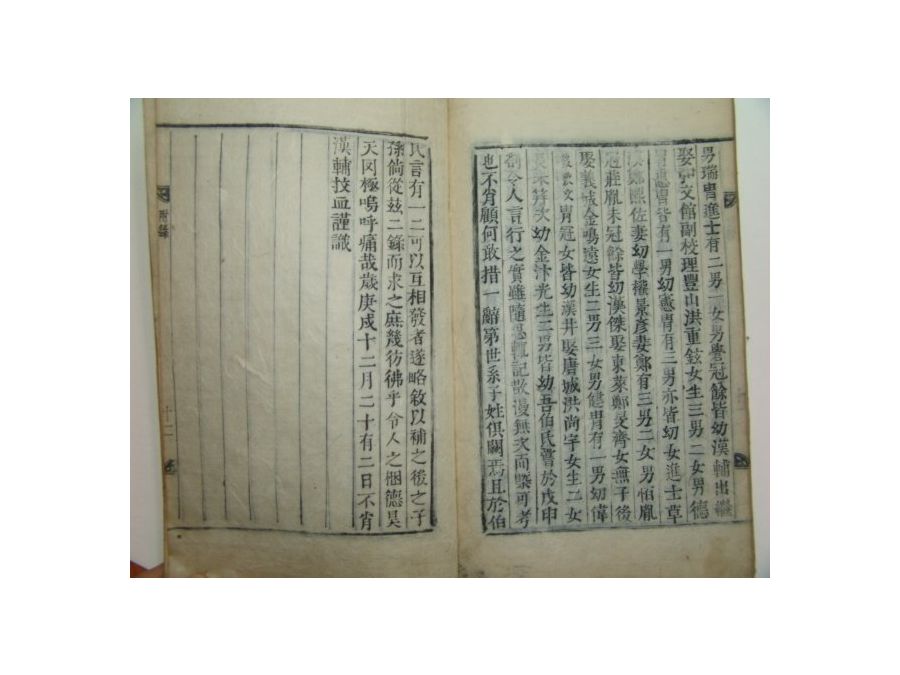 男瑞胄進士有二男一女男譽冠餘皆幼漢輔出繼
娶弘文館副校理豐山洪重鉉女生三男二女男德
胄憲胄皆有一男幼憲胄有三男亦皆幼女進士草
漢鄭熙佐妻幼學權景彥妻鄭有三男二女男怕胤
冠莊胤未冠餘皆幼漢傑娶東萊鄭旻濟女無子後
娶義城金鳴遠女生二男三女男健胄有一男幼偉
胄次胄冠女皆幼漢井娶唐城洪尚宇女生二女
長未笄次幼金汴光生二男皆幼吾伯氏嘗於戊申
劄令人言行之實雖隨思輒記散漫無次而槩可考
也不肖顧何敢措一辭第世系子姓俱闕焉且於伯
氏言有一二可以互相發者遂略敘以補之後之子
孫倘從玆二錄而求之庶幾彷彿乎令人之悃德昊
天罔極嗚呼痛哉歲庚戌十二月二十有二日不肖
漢輔抆血謹識
附錄
十二